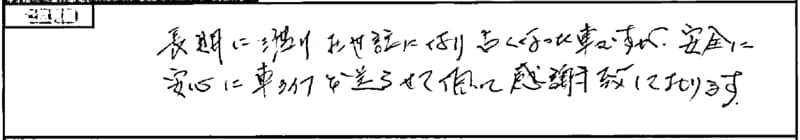 長期に渡りお世話になり古くなった車ですが、安全に
安心に車ライフを送らせて頂いて感謝致しております。